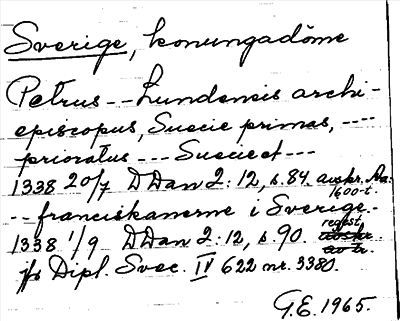 Sverige, konungadöme
Petrus -- Lundensis archi-
episcopus, Suecie primas, ----
prioratus --- Sueciect ---
1338 20/7 DDan 2:12, s. 84. avskr. Aa:
1600-t.
-- franciskanerne i Sverige.-
1338 1/9 DDan 2:12, s. 90. regest.
jfr Dipl. Svec. IV 622 nr. 3380.
G.E. 1965.